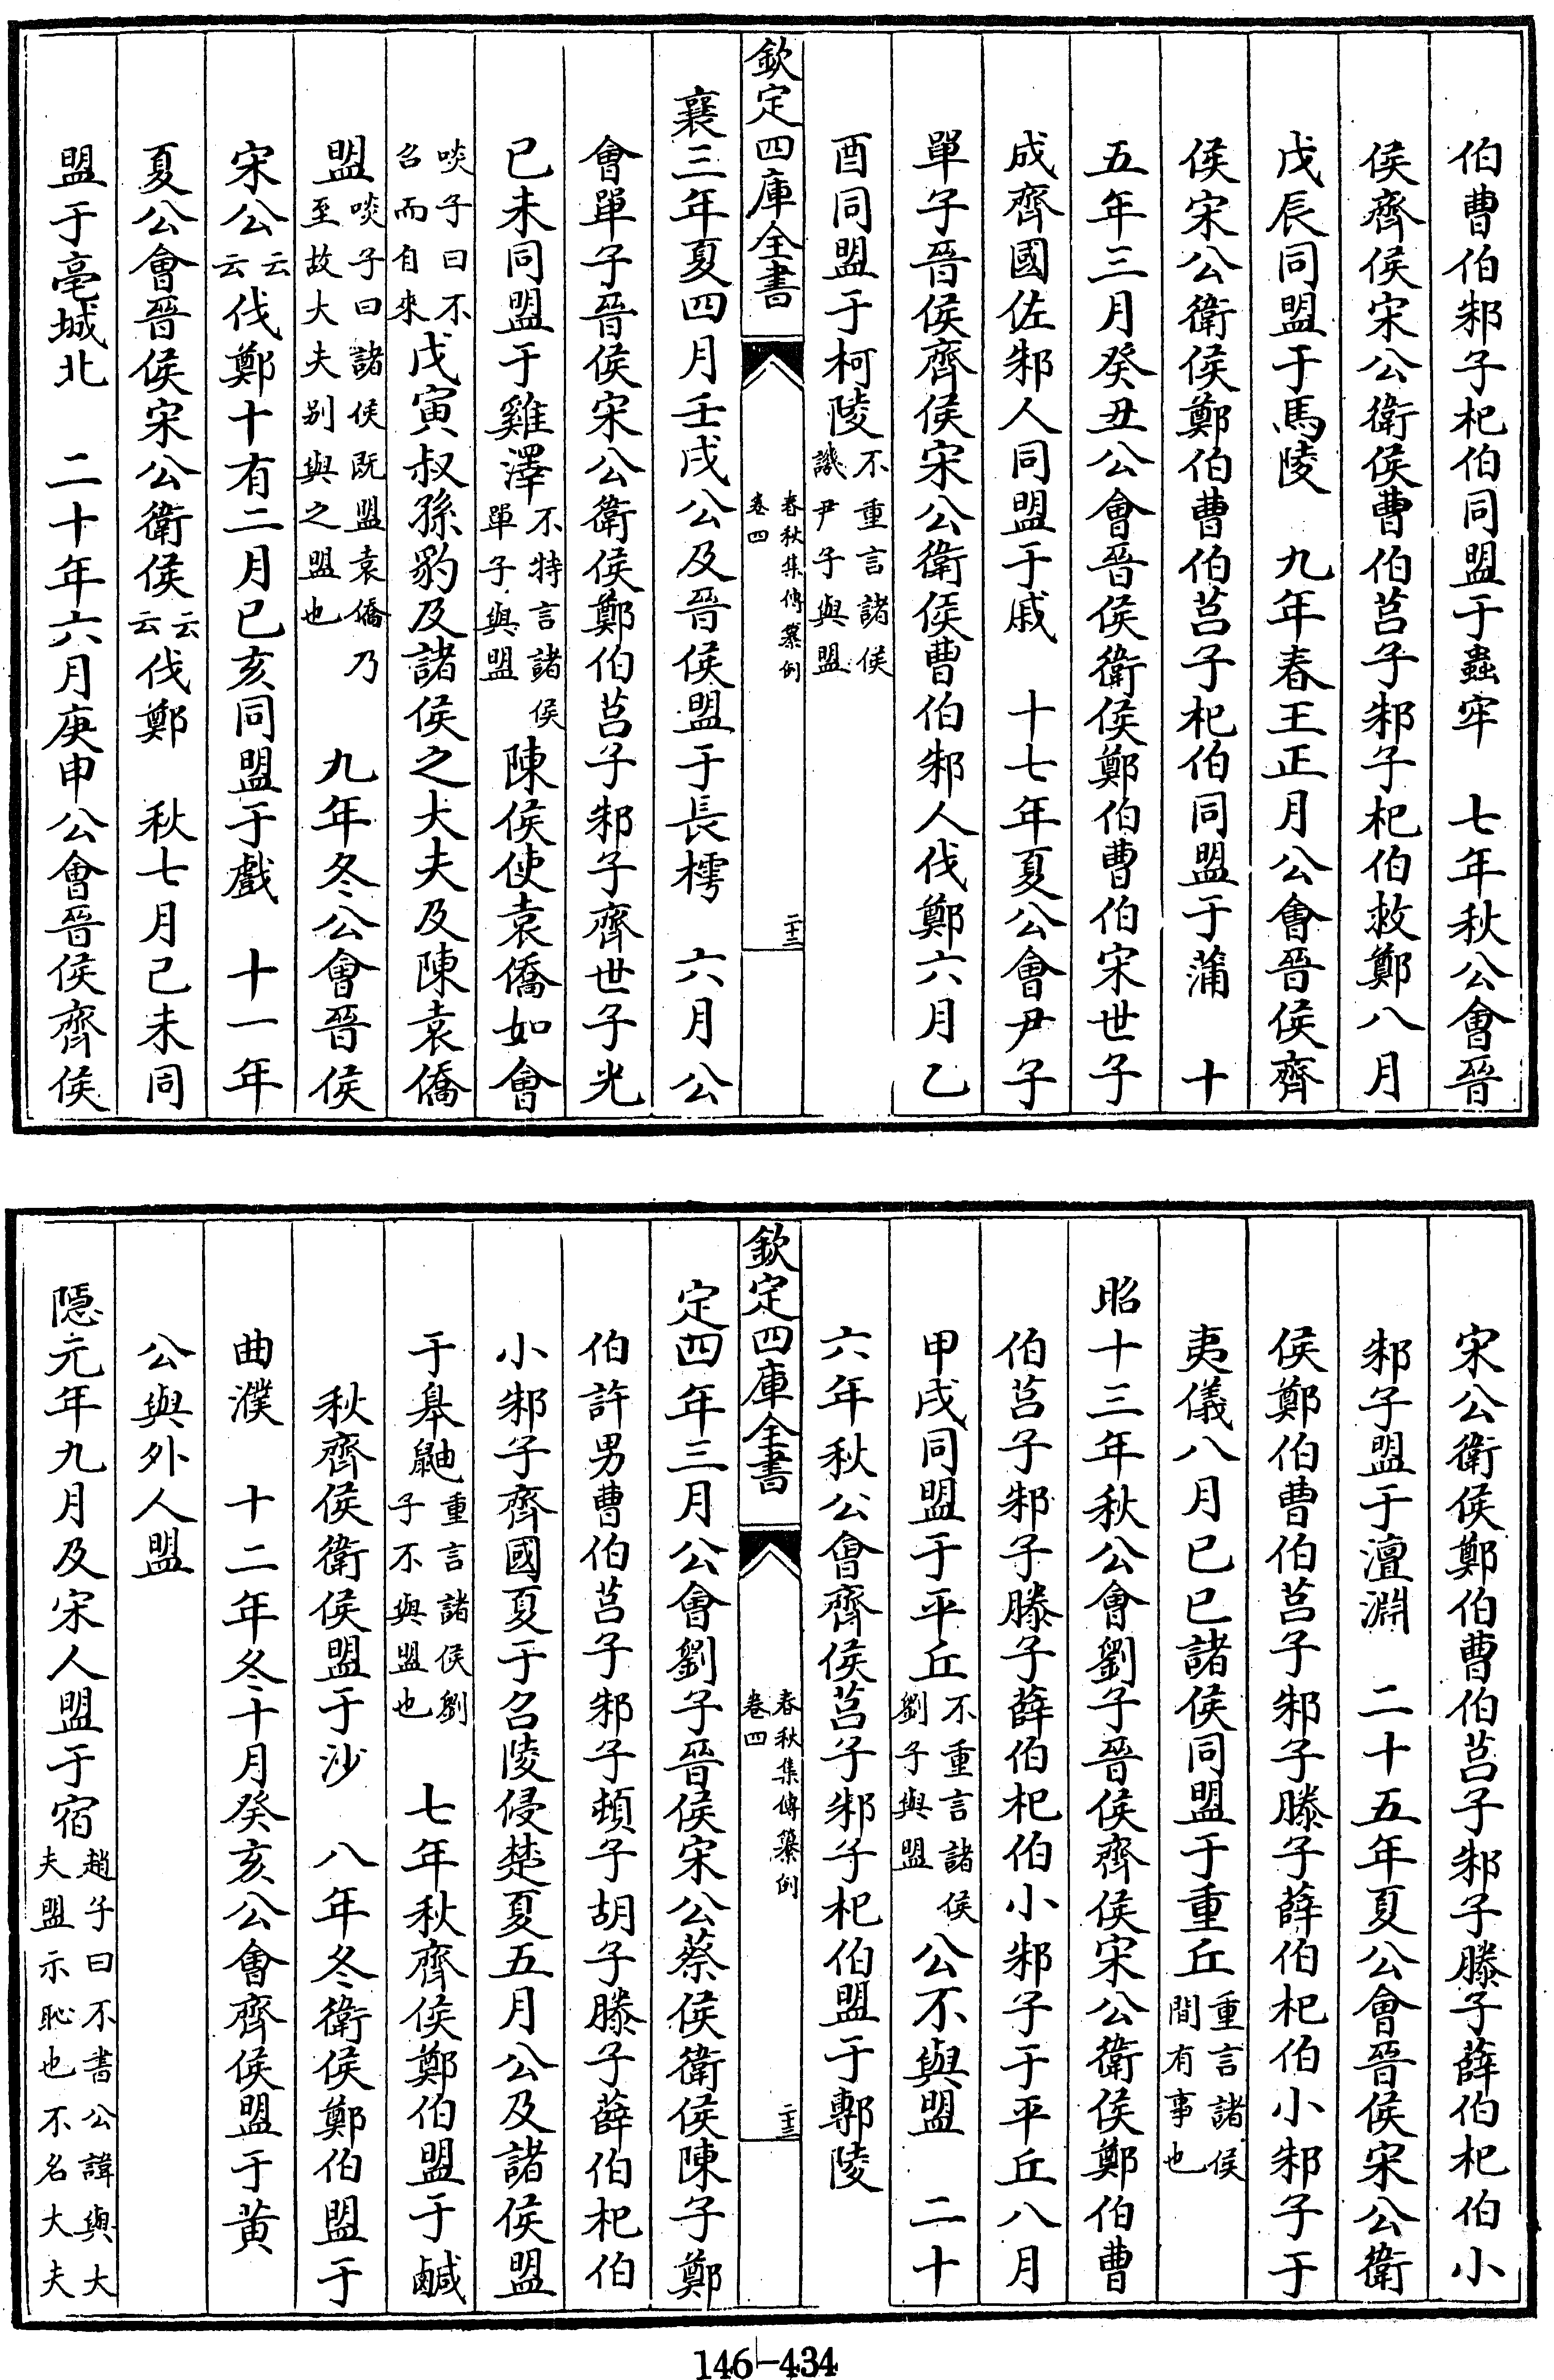 伯曹伯邾子杞伯同盟于蟲牢　七年秋公會晉
侯齊侯宋公衛侯曹伯莒子邾子杞伯救鄭八月
戊辰同盟于馬陵　九年春王正月公會晉侯齊
侯宋公衛侯鄭伯曹伯莒子杞伯同盟于蒲　十
五年三月癸丑公會晉侯衛侯鄭伯曹伯宋世子
成齊國佐邾人同盟于戚　十七年夏公會尹子
單子晉侯齊侯宋公衛侯曹伯邾人伐鄭六月乙
酉同盟于柯陵不重言諸侯譏尹子與盟
欽定四庫全書　春秋集傳纂例　卷四　二十二
襄三年夏四月壬戌公及晉侯盟于長樗　六月公
會單子晉侯宋公衛侯鄭伯莒子邾子齊世子光
已未同盟于雞澤不特言諸侯單子與盟陳侯使袁僑如會
啖子曰不召而自來戊寅叔孫豹及諸侯之大夫及陳袁僑
盟啖子曰諸侯既盟袁僑乃至故大夫别與之盟也　九年冬公會晉侯
宋公云云伐鄭十有二月已亥同盟于戲　十一年
夏公會晉侯宋公衛侯云云伐鄭　秋七月己未同
盟于亳城北　二十年六月庚申公會晉侯齊侯
宋公衛侯鄭伯曹伯莒子邾子滕子薛伯杞伯小
邾子盟于澶淵　二十五年夏公會晉侯宋公衛
侯鄭伯曹伯莒子邾子滕子薛伯杞伯小邾子于
夷儀八月已巳諸侯同盟于重丘重言諸侯間有事也
昭十三年秋公會劉子晉侯齊侯宋公衛侯鄭伯曹
伯莒子邾子滕子薛伯杞伯小邾子于平丘八月
甲戌同盟于平丘不重言諸侯劉子與盟公不與盟　二十
六年秋公會齊侯莒子邾子杞伯盟于鄟陵
欽定四庫全書　春秋集傳纂例　卷四　二十三
定四年三月公會劉子晉侯宋公蔡侯衛侯陳子鄭
伯許男曹伯莒子邾子頓子胡子滕子薛伯杞伯
小邾子齊國夏于召陵侵楚夏五月公及諸侯盟
于皋鼬重言諸侯劉子不與盟也　七年秋齊侯鄭伯盟于鹹
秋齊侯衛侯盟于沙　八年冬衛侯鄭伯盟于
曲濮　十二年冬十月癸亥公會齊侯盟于黄
公與外人盟
隱元年九月及宋人盟于宿趙子曰不書公諱與大夫盟示恥也不名大夫
146-434